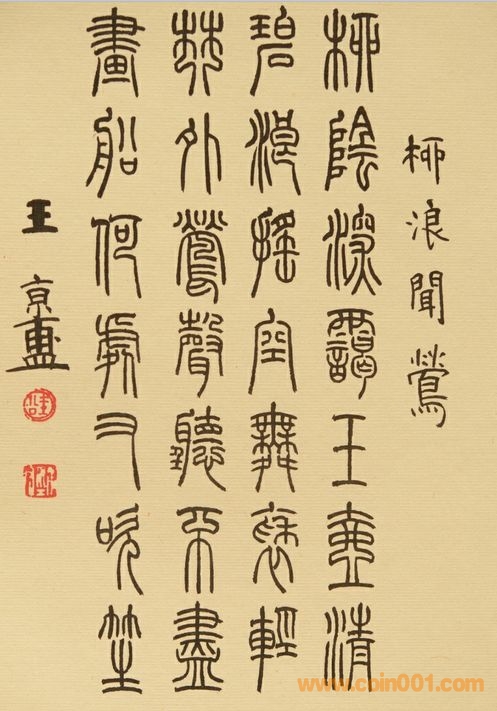 柳浪聞鶯
柳陰深靄玉壺清
碧浪搖空舞袖輕
林外鶯聲聽不盡
畫船何處又吹笙
王京盙
www.coin001.com